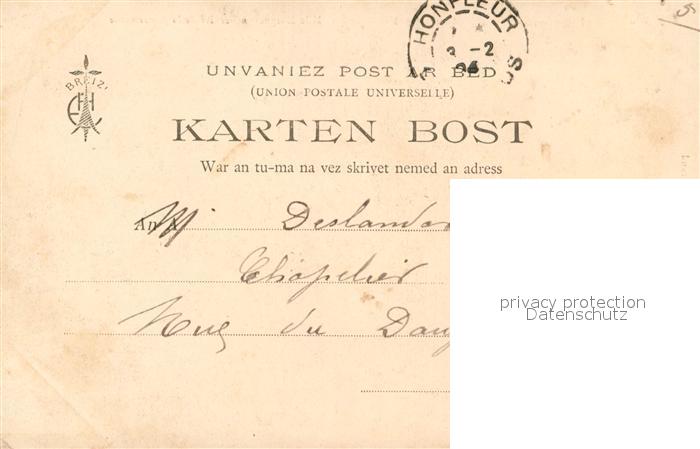 5
HONFLEUR
BREIZ
UNVANIEZ POST AR BED
(UNION POSTALE UNIVERSELLE)
KARTEN BOST
War an tu-ma na vez skrivet nemed an adress
M Deslandes
Chapelier
Rue du Dau
privacy protection
Datenschutz